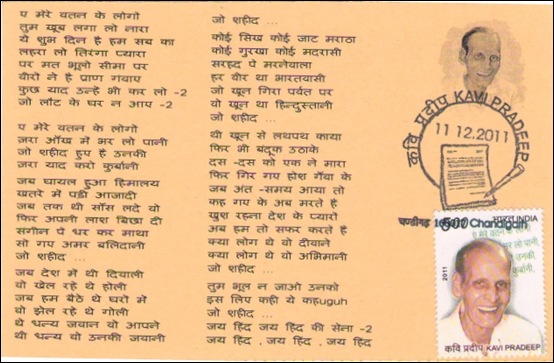 ए मेरे वतन के लोगो
तुम खूब लगा लो नारा
ये शुभ दिन है हम सब का
लहरा लो तिरंगा प्यारा
पर मत भूलो सीमा पर
वीरो ने है प्राण गंवाए
कुछ याद उन्हे भी कर लो -2
जो लौट के घर न आए -2
ए मेरे वतन के लोगो
जरा आँख में भर लो पानी
जो शहीद हुए है उनकी
जरा याद करो कुर्बानी
जब घायल हुआ हिमालय
खतरे में पड़ी आजादी
जब तक थी साँस लदे वो
फिर अपनी लाश बिछा दी
संगीन पे धर कर माथा
सो गए अमर बलिदानी
जो शहीद ...
जब देश में थी दिवाली
वो खेल रहे थे होली
जब हम बैठे थे घरों में
वो झेल रहे थे गोली
थे धन्य जवान वो आपने
थी धन्य वो उनकी जवानी
जो शहीद ...
कोई सिख कोई जाट मराठा
कोई गुरखा कोई मदरासी
सरहद पे मरनेवाला
हर वीर था भारतवासी
जो खून गिरा पर्वत पर
वो खून था हिन्दुस्तानी
जो शहीद ...
थी खून से लथपथ काया
फिर भी बंदूक उठाके
दस -दस को एक ने मारा
फिर गिर गए होश गँवा के
जब अंत -समय आया तो
कह गए के अब मरते है
खुश रहना देश के प्यारों
अब हम तो सफर करते है
क्या लोग थे वो दीवाने
क्या लोग थे वो अभिमानी
जो शहीद ...
तुम भूल न जाओ उनको
इस लिए कही ये कहuguh
जो शहीद ...
जय हिंद जय हिंद की सेना -2
जय हिंद , जय हिंद , जय हिंद
कवि प्रदीप KAVI PRADEEP
11 12.2011
चण्डीगढ़ Chandigarh
500 भारत INDIA
2011
कवि प्रदीप KAVI PRADEEP